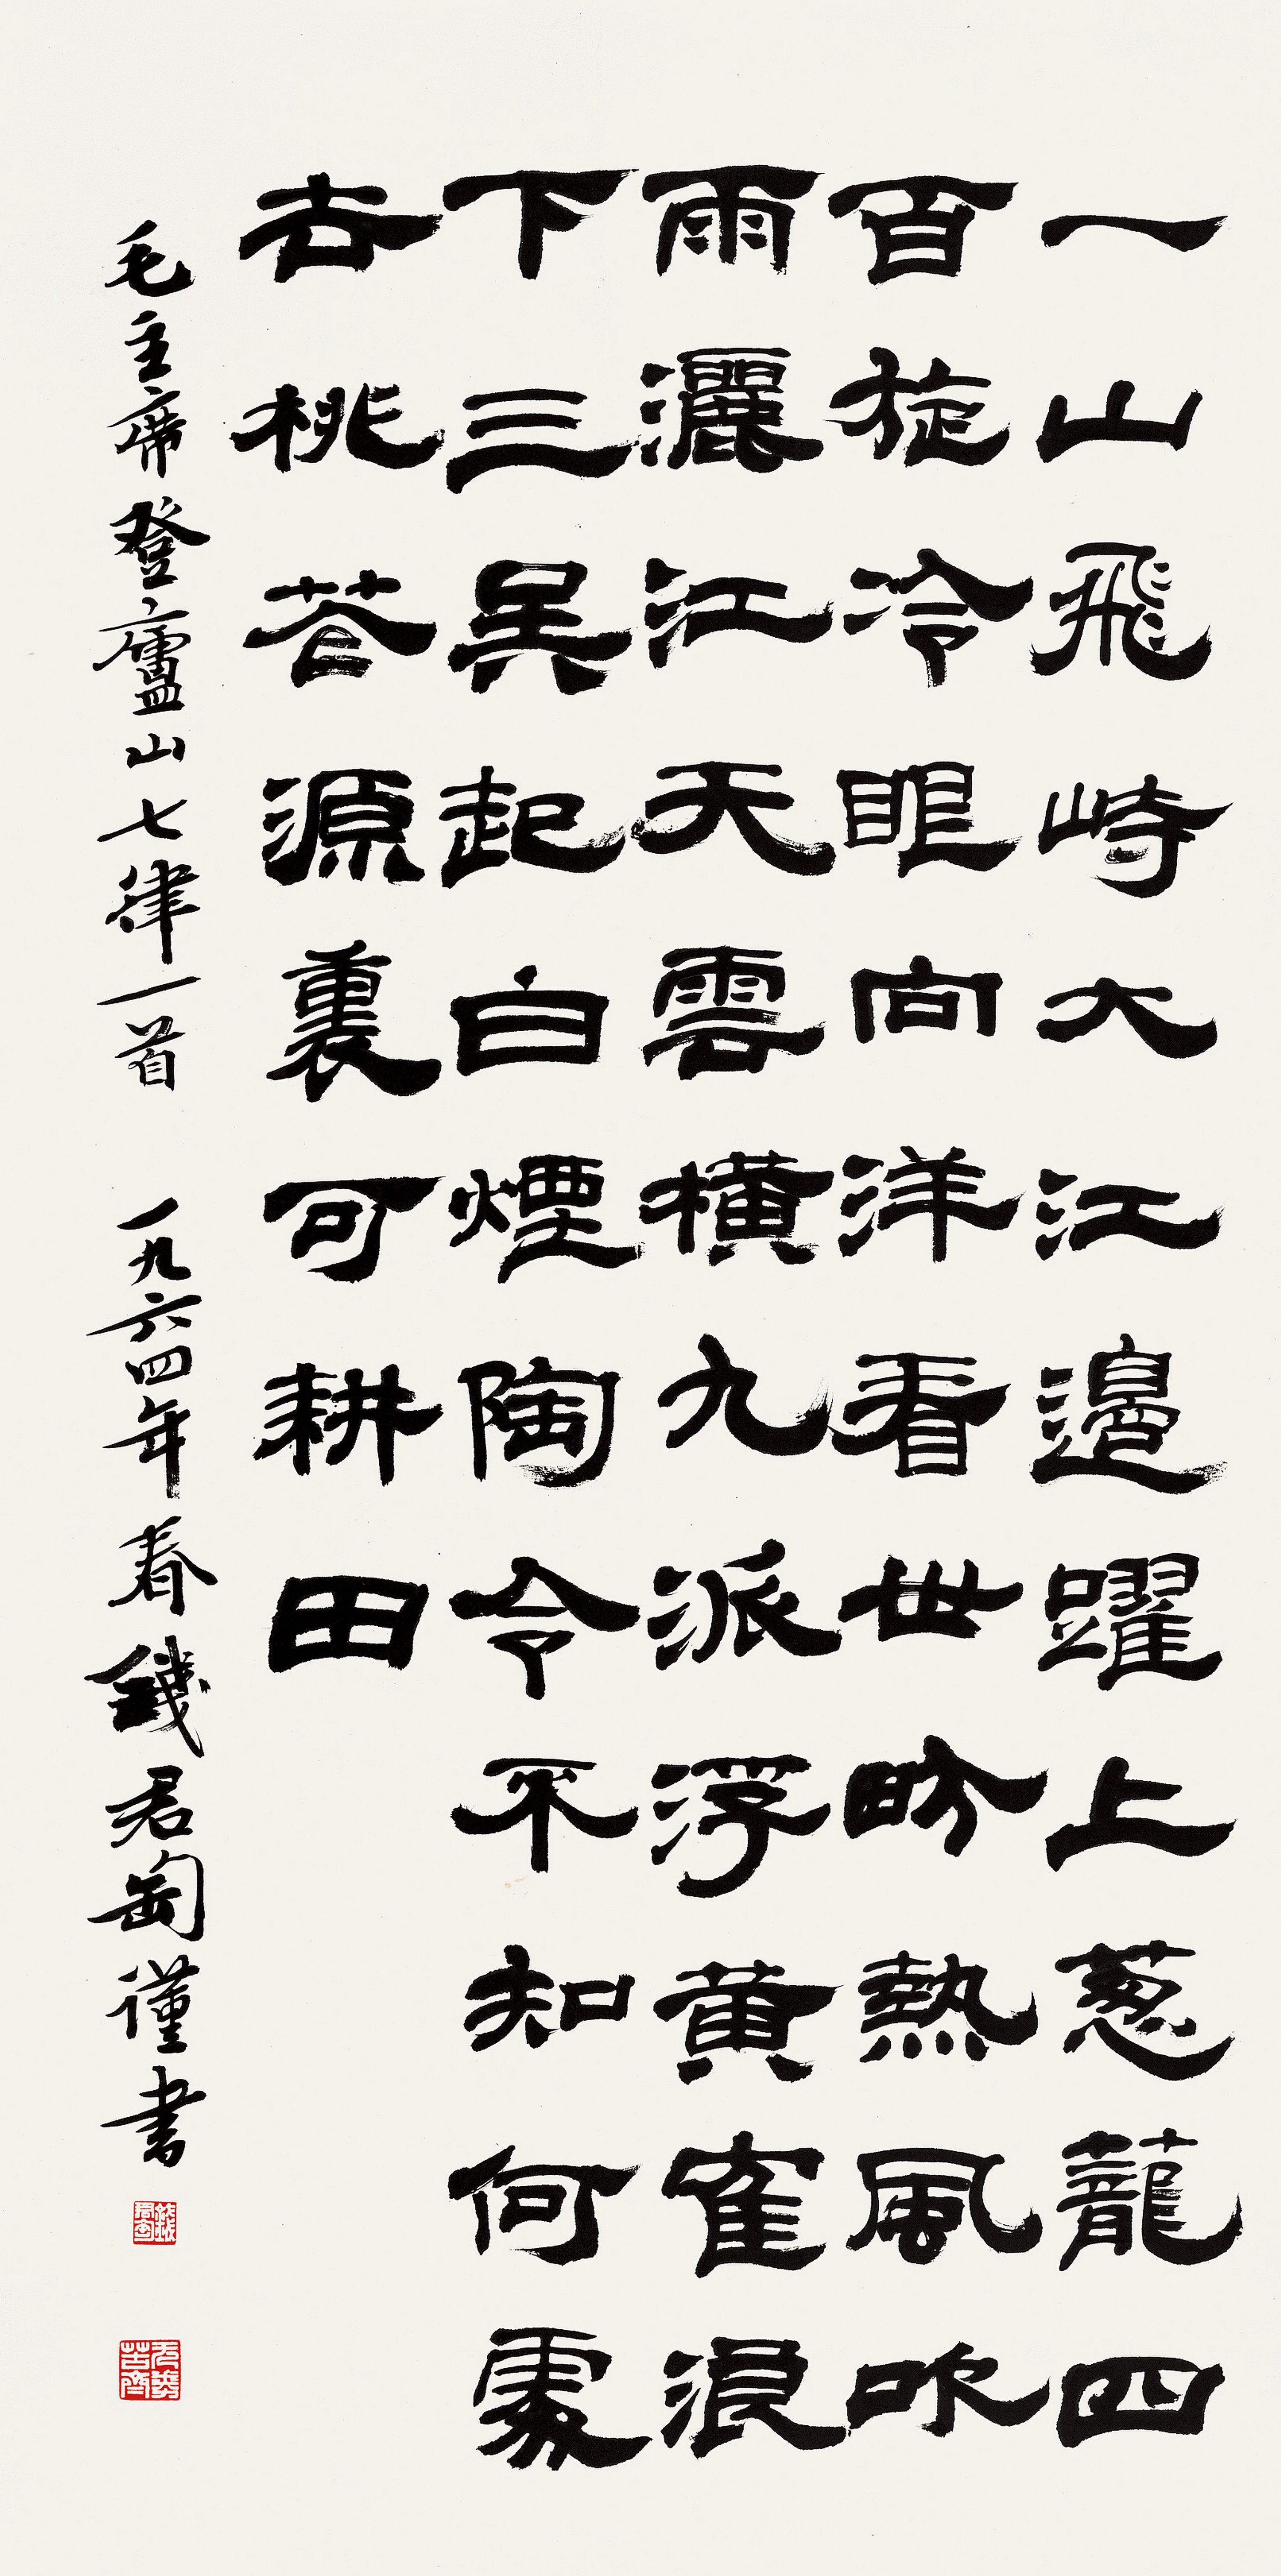 一山飛峙大江邊躍上葱蘢四
百旋冷眼向洋看世畍熱風吹
雨灑江天雲橫九派浮黃寉浪
下三吳起白煙陶令不知何處
去桃花源裏可耕田
毛主席登廬山七律一首 一九六四年春 錢君匋謹書